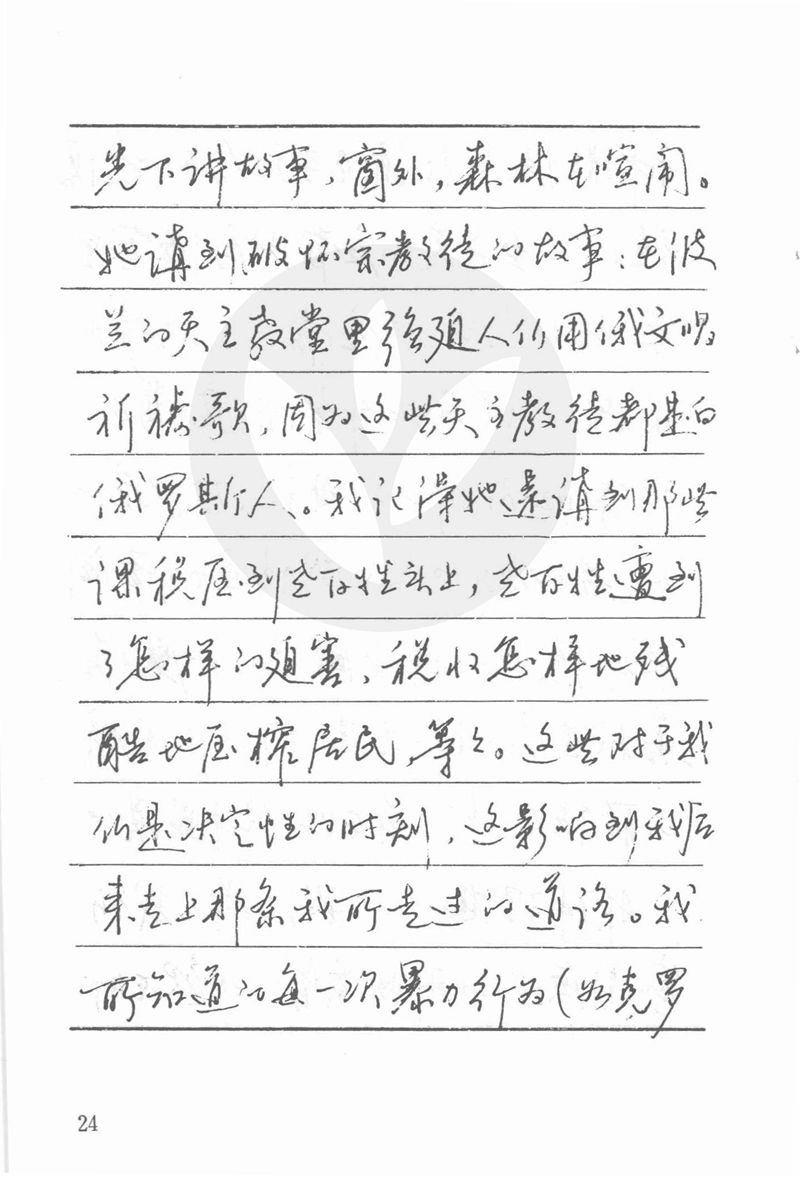 光下讲故事，窗外，森林在喧闹。
她講到破怀宗教徒的故事：在波
兰的天主教堂里强迫人们用俄文唱
祈祷歌，因为这些天主教徒都是白
俄罗斯人。我记得她还講到那些
课税压到老百姓头上，老百姓遭到
了怎样的迫害，税收怎样地残
酷地压榨居民，等々。这些对于我
们是决定性的时刻，这影响到我后
来走上那条我所走过的道路。我
所知道的每一次暴力行为（如克罗
24